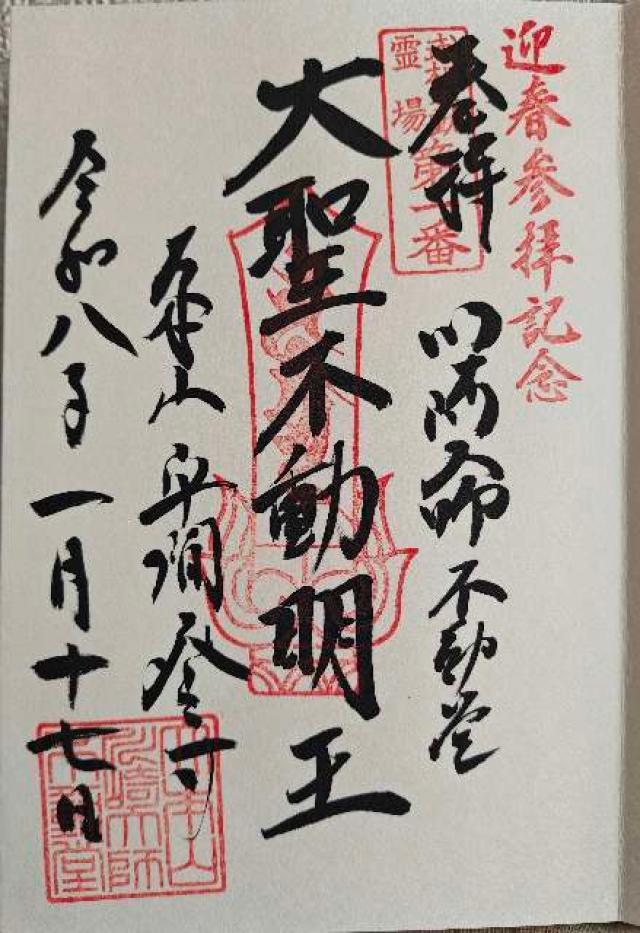 迎春参拝記念
奉拝
霊場
第一番
川崎大師不動堂
大聖不動明王
大本山平間寺
令和八年一月十七日